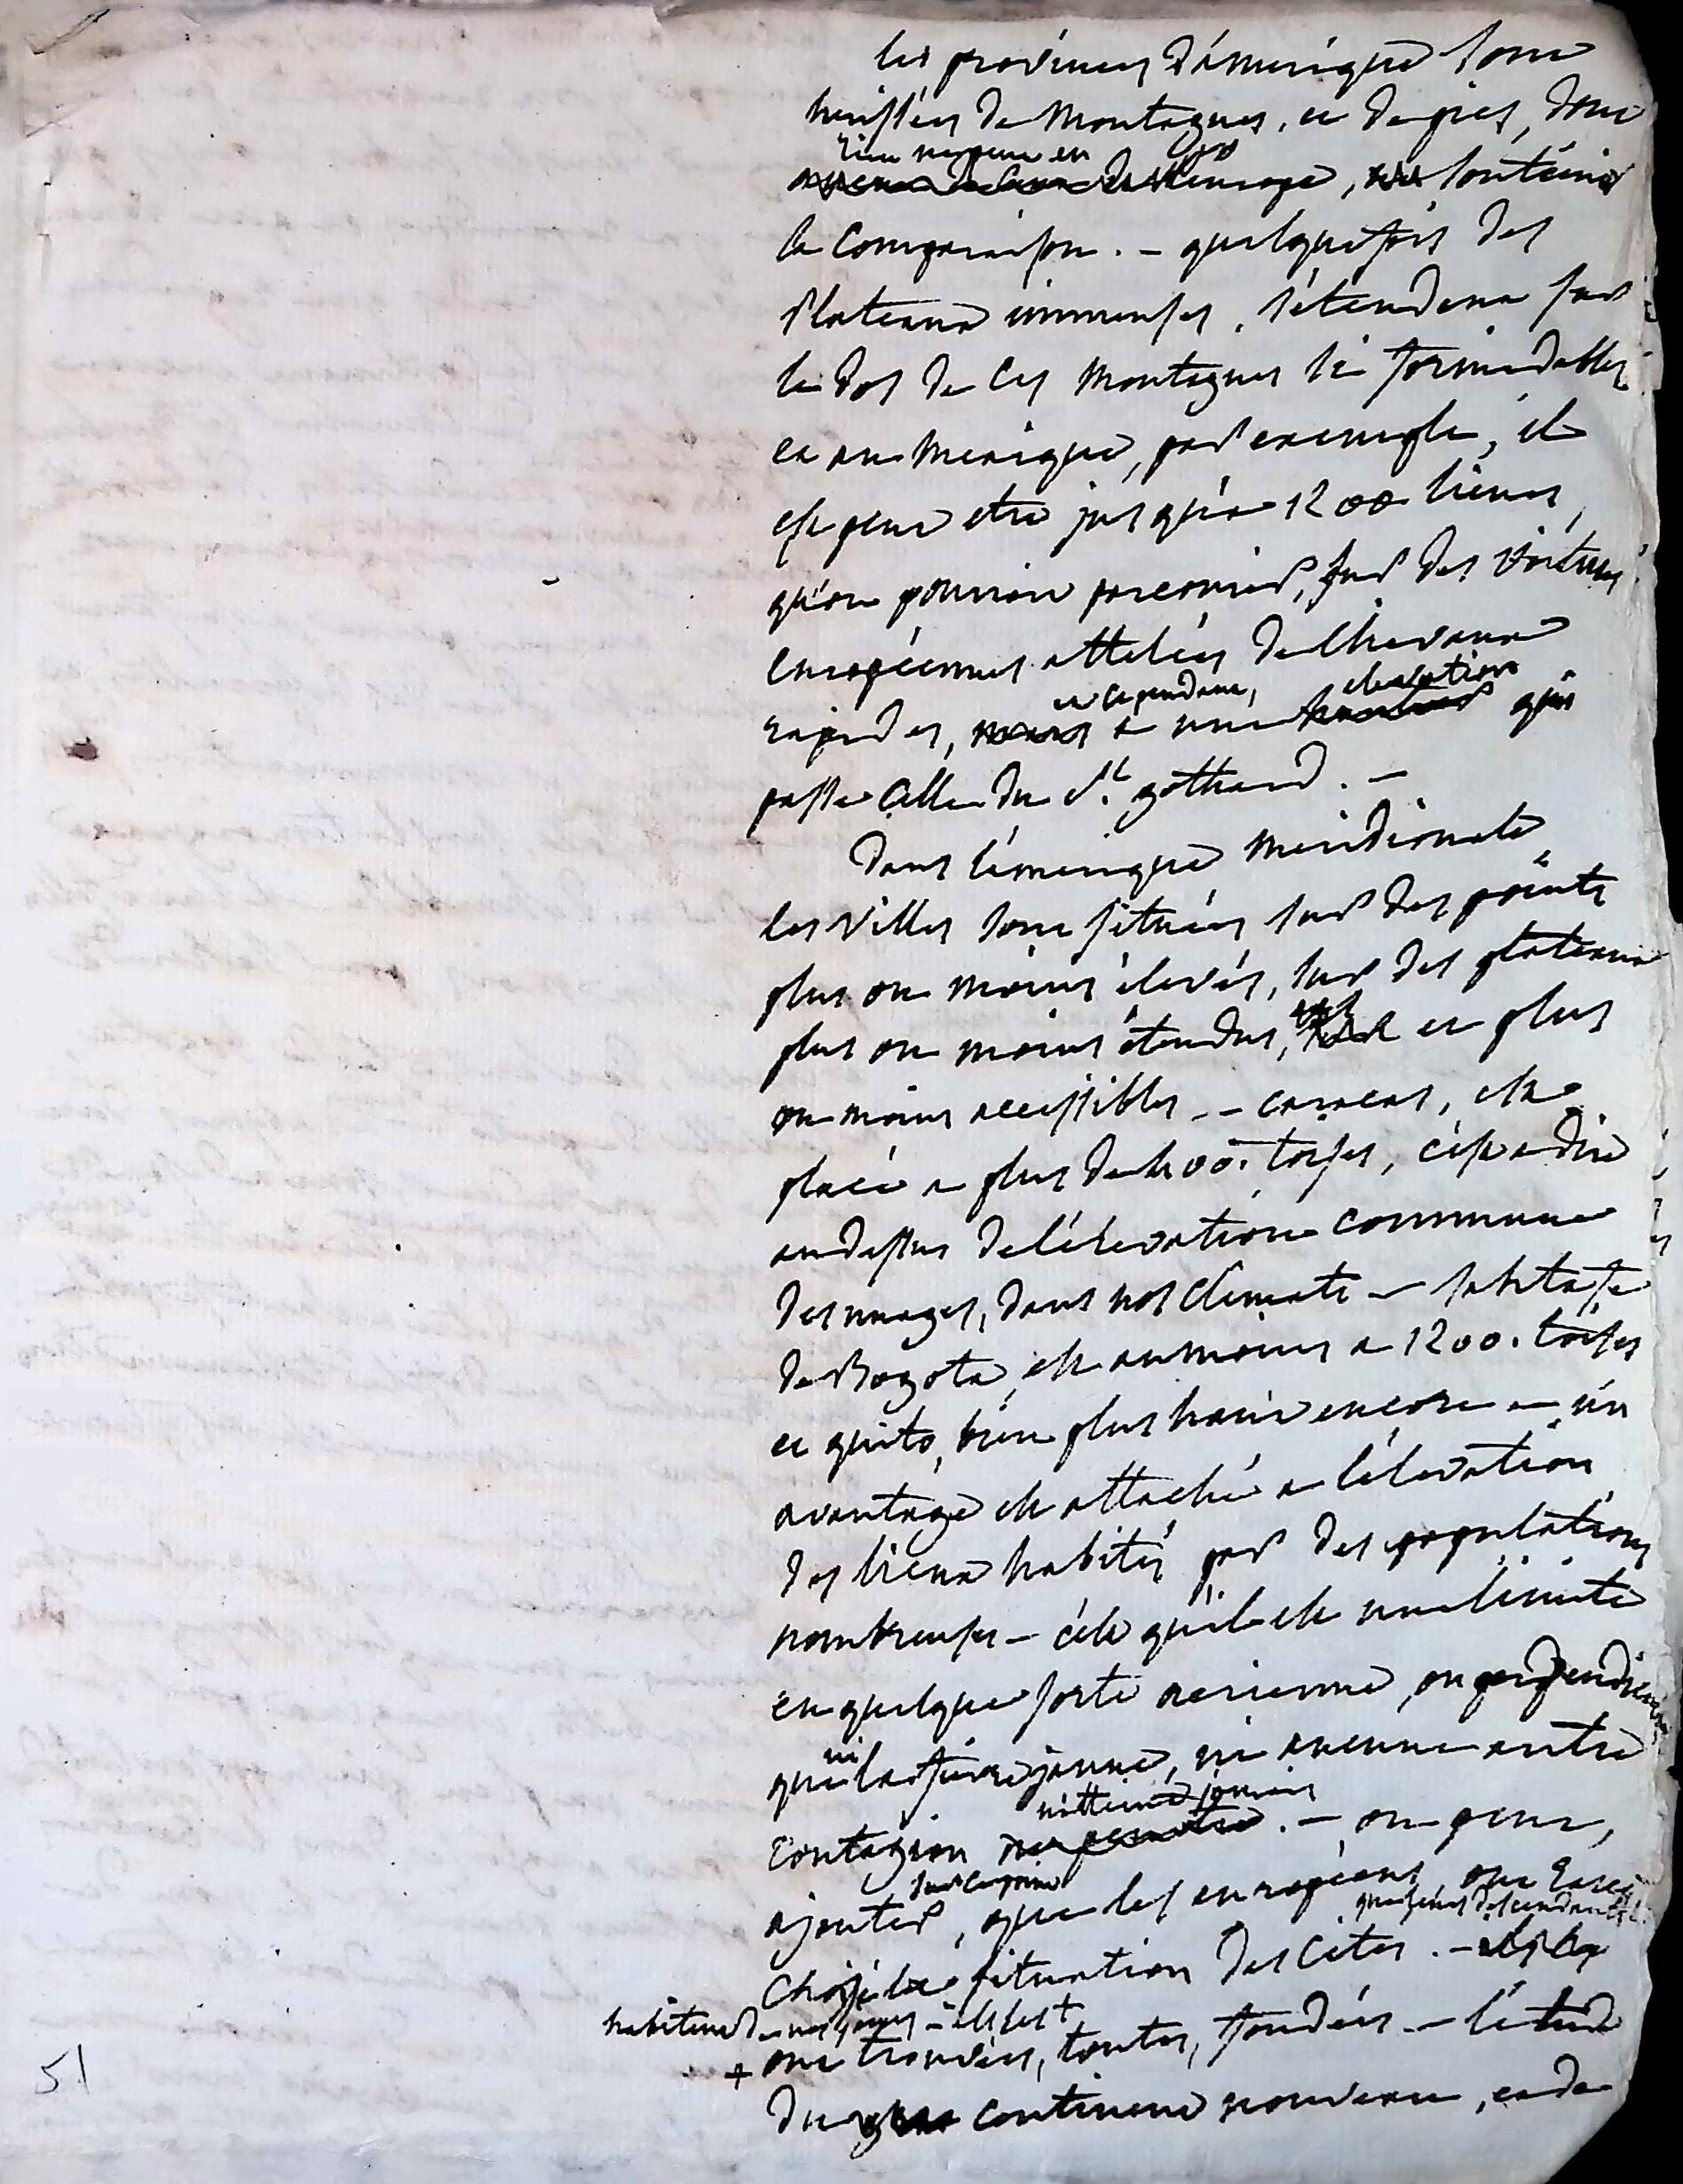 les provinces d'amerique sont
hérissées de montagnes, et de pics, dont
rien ne peut en
europe, soutenir
la comparaison. - quelquefois des
plateaux immenses, s'étendent sur
le dos de ces montagnes si formidables
et au mexique, par exemple, il
est peut etre jusqu'a 1200 lieues,
qu'on pourroit parcourir, sur des voitures
européennes attelées de chevaux
et cependant, elevation
rapides, mais a une hauteur qui
passe celle du st. gothard. -
dans l'amerique meridionale
les villes sont situées sur des points
plus ou moins élevés, sur des plateaux
plus ou moins étendus, et plus
ou moins accessibles - caracas, est
placé a plus de 400. toises, c'est a dire
au dessus de l'élevation commune
des nuages, dans nos climats - santa fe
de Bogota, est au moins a 1200. toises
et quito, bien plus haut encore - un
avantage est attaché a l'élevation
des lieux habités par des populations
nombreuses - c'est qu'il est une limite
en quelque sorte aerienne, ou perpendiculaire
ni
que la fievre jaune, ni aucune autre
n'atteint jamais
contagion ne penetre. - on peut,
ajouter, que les européens, ont
que leurs descendants
choisi la situation des cités. -
habitent de nos jours - ils les +
+ ont trouvées, toutes, fondées. - l'étude
du continent nouveau, et de
51